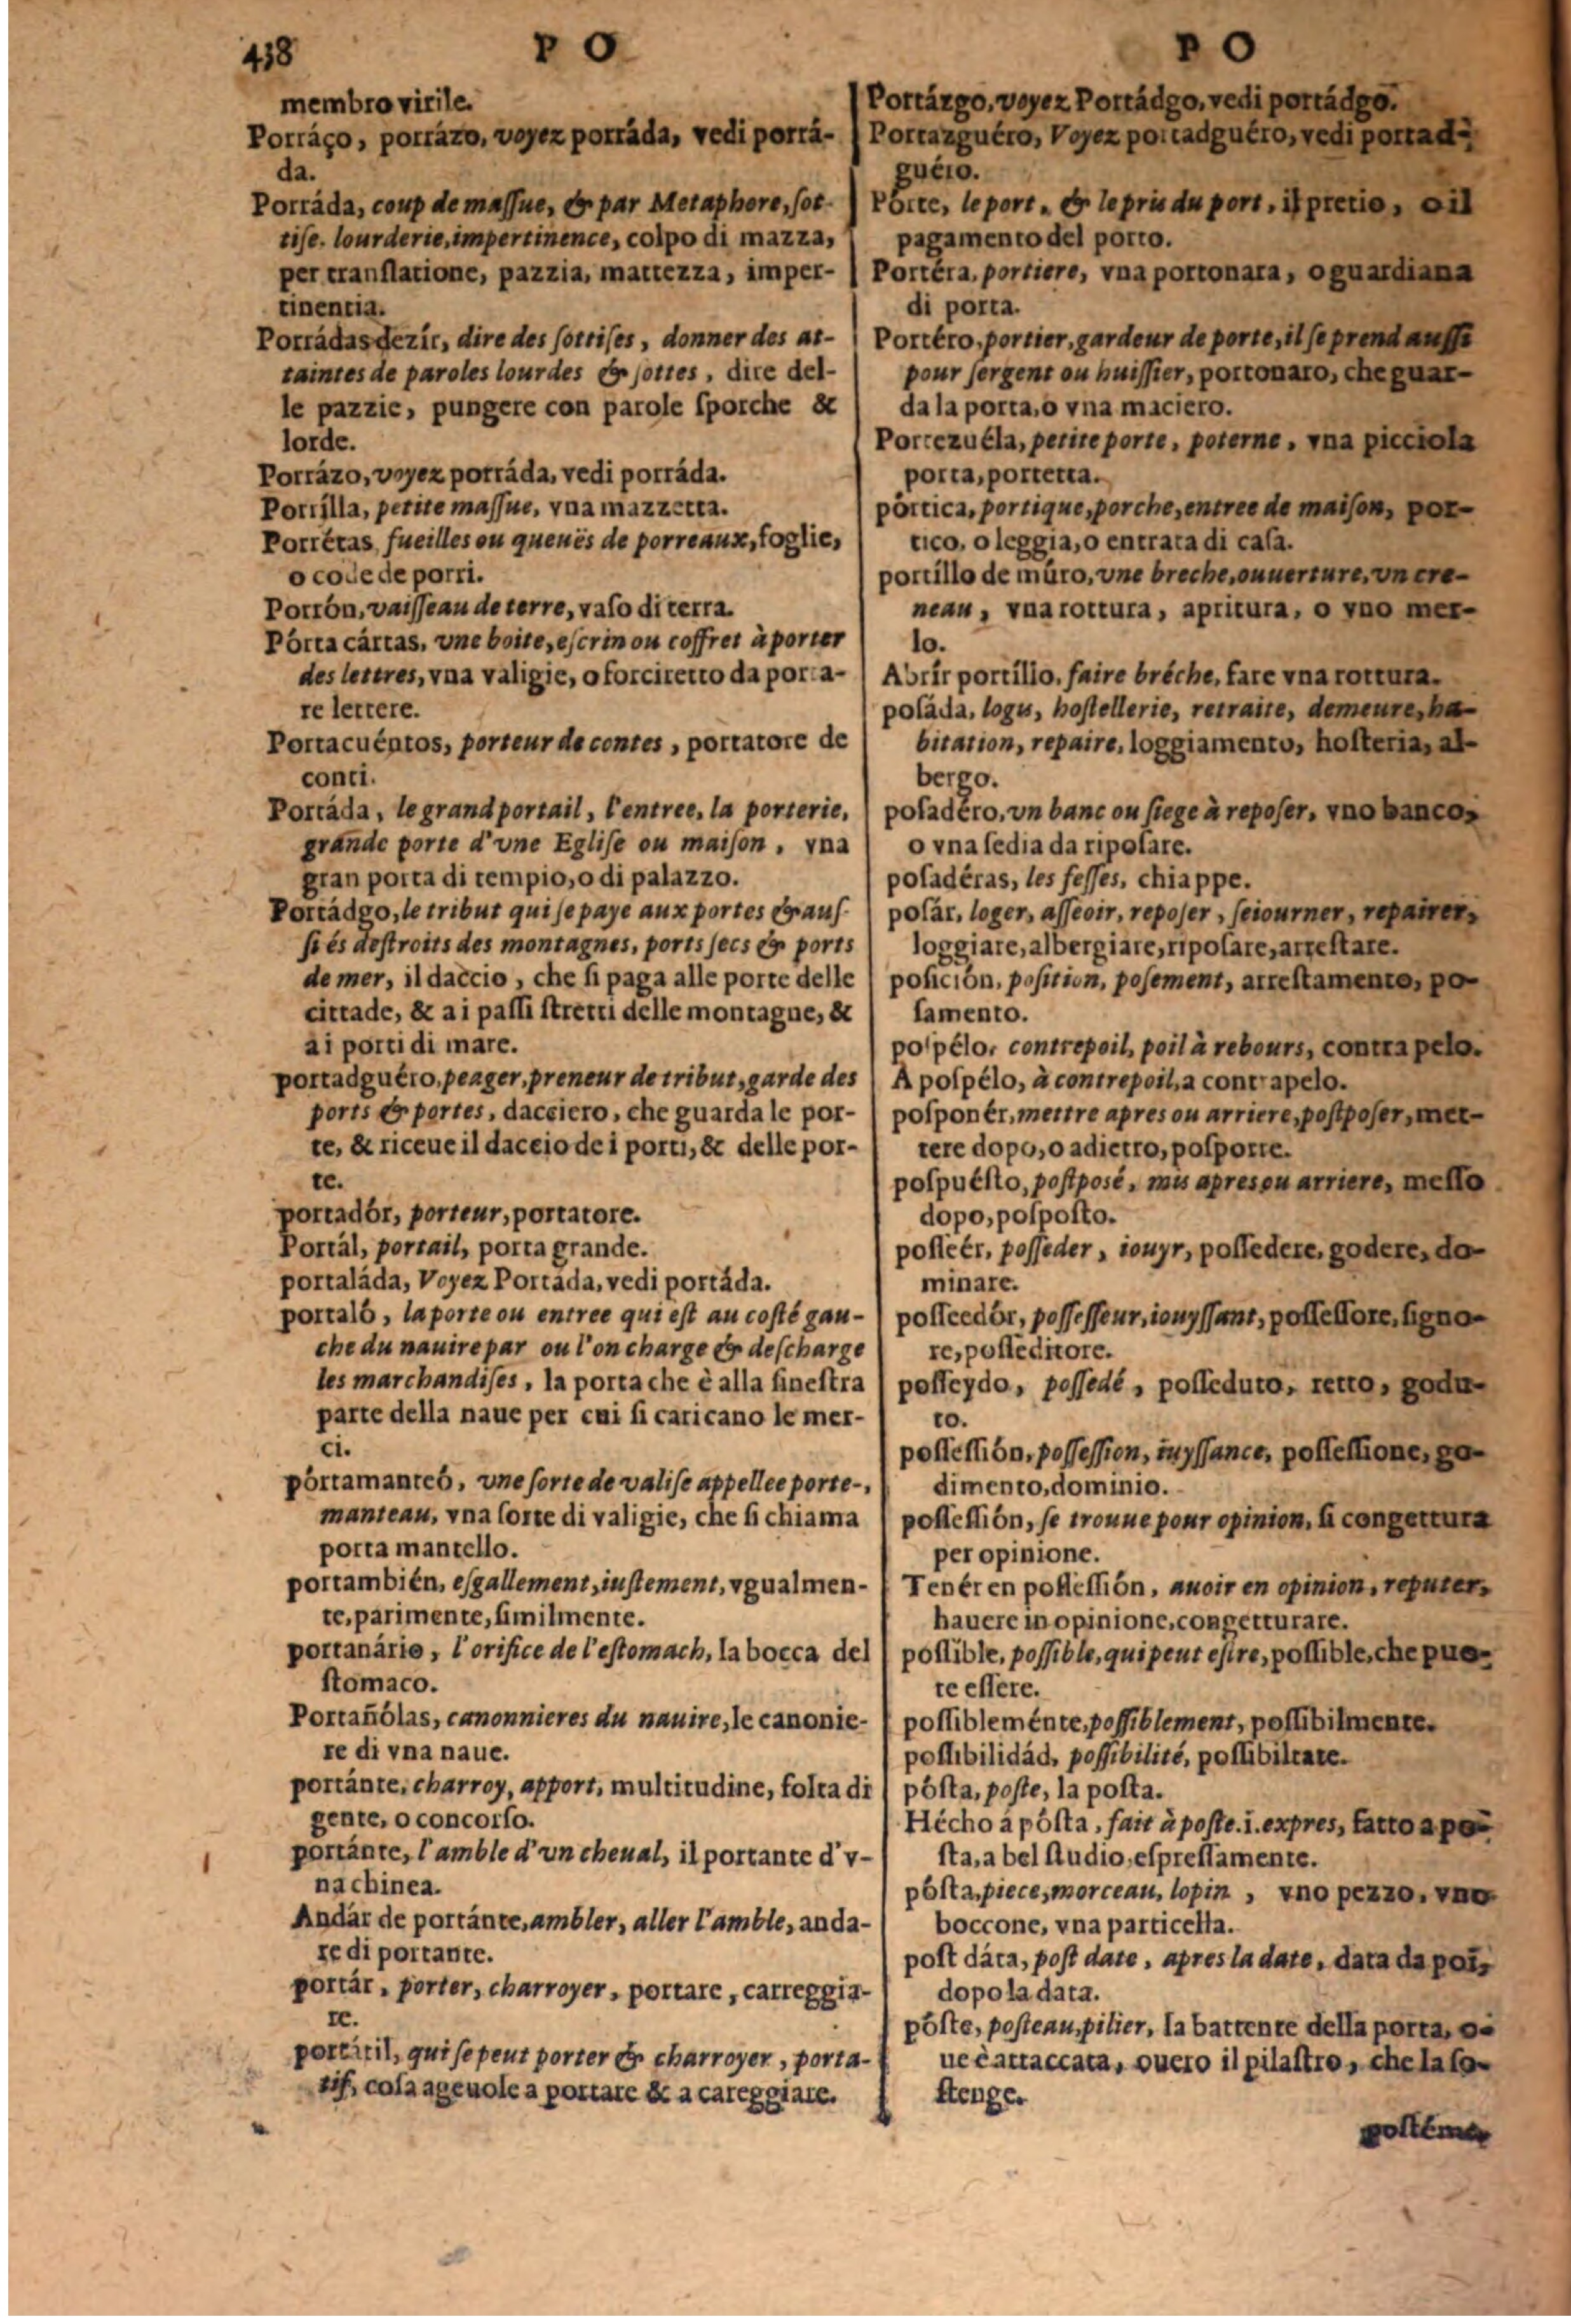 438 P O P O
membro virile.
Porráço, porrázo, voyez porráda, vedi porrá-
da.
Porráda, coup de maſſue, & par Metaphore, ſot-
tiſe. lourderie, impertinence, colpo di mazza,
per tranſlatione, pazzia, mattezza, imper-
tinentia.
Porrádas dezír, dire des ſottiſes, donner des at-
taintes de paroles lourdes & ſottes, dire del-
le pazzie, pungere con parole ſporche &
lorde.
Porrázo, voyez porráda, vedi porráda.
Porrílla, petite maſſue, vna mazzetta.
Porrétas, fueilles ou queuës de porreaux, foglie,
o code de porri.
Porrón, vaiſſeau de terre, vaſo di terra.
Pórta cártas, vne boite, eſcrin ou coffret à porter
des lettres, vna valigie, o forciretto da porta-
re lettere.
Portacuéntos, porteur de contes, portatore de
conti.
Portáda, le grand portail, l'entree, la porterie,
grande porte d'vne Egliſe ou maiſon, vna
gran porta di tempio, o di palazzo.
Portádgo, le tribut qui ſe paye aux portes & auſ-
ſi és deſtroits des montagnes, ports ſecs & ports
de mer, il daccio, che ſi paga alle porte delle
cittade, & a i paſſi ſtretti delle montagne, &
a i porti di mare.
portadguéro, peager, preneur de tribut, garde des
ports & portes, dacciero, che guarda le por-
te, & riceue il daccio de i porti, & delle por-
te.
portadór, porteur, portatore.
Portál, portail, porta grande.
portaláda, Voyez Portáda, vedi portáda.
portaló, la porte ou entree qui eſt au coſté gau-
che du nauire par ou l'on charge & deſcharge
les marchandiſes, la porta che è alla ſineſtra
parte della naue per cui ſi caricano le mer-
ci.
pórtamanteó, vne ſorte de valiſe appellee porte-
manteau, vna ſorte di valigie, che ſi chiama
porta mantello.
portambién, eſgallement, iuſtement, vgualmen-
te, parimente, ſimilmente.
portanário, l'orifice de l'eſtomach, la bocca del
ſtomaco.
Portañólas, canonnieres du nauire, le canonie-
re di vna naue.
portánte, charroy, apport, multitudine, folta di
gente, o concorſo.
portánte, l'amble d'vn cheual, il portante d'v-
na chinea.
Andár de portánte, ambler, aller l'amble, anda-
re di portante.
portár, porter, charroyer, portare, carreggia-
re.
portátil, qui ſe peut porter & charroyer, porta-
tif, coſa ageuole a portare & a careggiare.
Portázgo, voyez Portádgo, vedi portádgo.
Portazguéro, Voyez portadguéro, vedi portad-
guéro.
Pórte, le port, & le pris du port, il pretio, o il
pagamento del porto.
Portéra, portiere, vna portonara, o guardiana
di porta.
Portéro, portier, gardeur de porte, il ſe prend auſſi
pour ſergent ou huiſſier, portonaro, che guar-
da la porta, o vna maciero.
Portezuéla, petite porte, poterne, vna picciola
porta, portetta.
pórtica, portique, porche, entree de maiſon, por-
tico, o leggia, o entrata di caſa.
portíllo de múro, vne breche, ouuerture, vn cre-
neau, vna rottura, apritura, o vno mer-
lo.
Abrír portíllo, faire bréche, fare vna rottura.
poſáda, logu, hoſtellerie, retraite, demeure, ha-
bitation, repaire, loggiamento, hoſteria, al-
bergo.
poſadéro, vn banc ou ſiege à repoſer, vno banco,
o vna ſedia da ripoſare.
poſadéras, les feſſes, chiappe.
poſár, loger, aſſeoir, repoſer, ſeiourner, repairer,
loggiare, albergiare, ripoſare, arreſtare.
poſición, poſition, poſement, arreſtamento, po-
ſamento.
poſpélo, contrepoil, poil à rebours, contra pelo.
A poſpélo, à contrepoil, a contrapelo.
poſponér, mettre apres ou arriere, poſtpoſer, met-
tere dopo, o adietro, poſporre.
poſpuéſto, poſtposé, mis apres ou arriere, meſſo
dopo, poſpoſto.
poſſeér, poſſeder, iouyr, poſſedere, godere, do-
minare.
poſſeedór, poſſeſſeur, iouyſſant, poſſeſſore, ſigno-
re, poſſeditore.
poſſeydo, poſſedé, poſſeduto, retto, godu-
to.
poſſeſſión, poſſeſſion, iuyſſance, poſſeſſione, go-
dimento, dominio.
poſſeſſión, ſe trouue pour opinion, ſi congettura
per opinione.
Tenér en poſſeſſión, auoir en opinion, reputer,
hauere in opinione, congetturare.
poſſible, poſſible, qui peut eſtre, poſſible, che puo-
te eſſere.
poſſibleménte, poſſiblement, poſſibilmente.
poſſibilidád, poſſibilité, poſſibiltate.
póſta, poſte, la poſta.
Hécho á póſta, fait à poſte. i. expres, fatto a po-
ſta, a bel ſtudio, eſpreſſamente.
póſta, piece, morceau, lopin, vno pezzo, vno
boccone, vna particella.
poſt dáta, poſt date, apres la date, data da poi,
dopo la data.
póſte, poſteau, pilier, la battente della porta, o-
ue è attaccata, ouero il pilaſtro, che la ſo-
ſtenge.
poſtéma